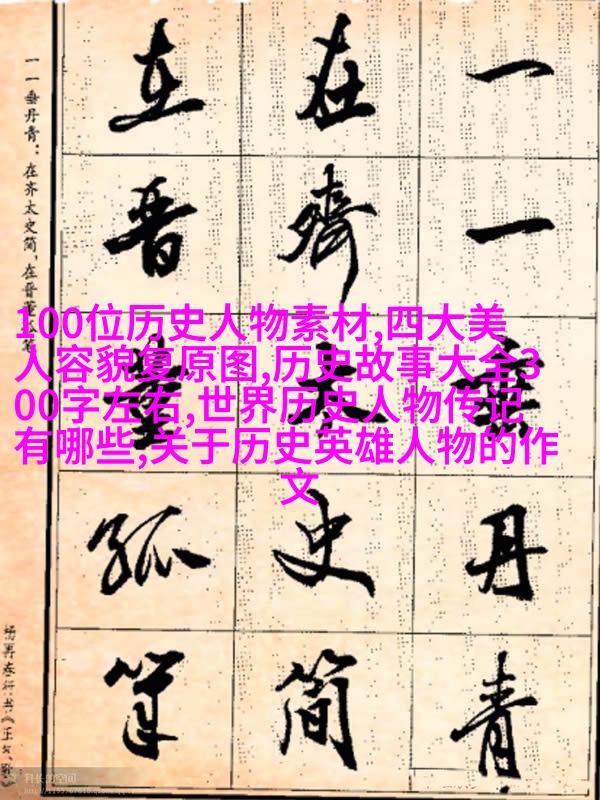 100位历史人物素材,四大美
人容貌复原图,历史故事大全3
00字左右,世界历史人物传记
有哪些,关于历史英雄人物的作
文
一一垂丹青
在齊太史簡
在晉董狐筆
一一垂丹青：在齐太史简，在晋董狐笔
杨再春行书《正气歌》
科长的空间